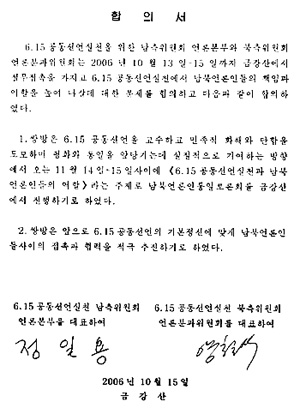 합 의 서
6.15 공동선언실천을 위한 남측위원회 언론본부와 북측위원회
언론분과위원회는 2006 년 10 월 13 일-15 일까지 금강산에서
실무접촉을 가지고 6.15 공동선언실천에서 남북언론인들의 책임과
역할을 높여 나갈데 대한 문제를 협의하고 다음과 같이 합의하
였다.
1. 쌍방은 6.15 공동선언을 고수하고 민족적 화해와 단합을
도모하며 평화와 통일을 앞당기는데 실질적으로 기여하는 방향
에서 오는 11 월 14 일-15 일사이에 《6.15 공동선언실천과 남북
언론인들의 역할》라는 주제로 남북언론인통일토론회를 금강산
에서 진행하기로 하였다.
2. 쌍방은 앞으로 6.15 공동선언의 기본정신에 맞게 남북언론인
들사이의 접촉과 협력을 적극 추진하기로 하였다.
6.15 공동선언실천 남측위원회
언론본부를 대표하여
정 일 용
6.15 공동선언실천 북측위원회
언론분과위원회를 대표하여
2006 년 10 월 15 일
금 강 산